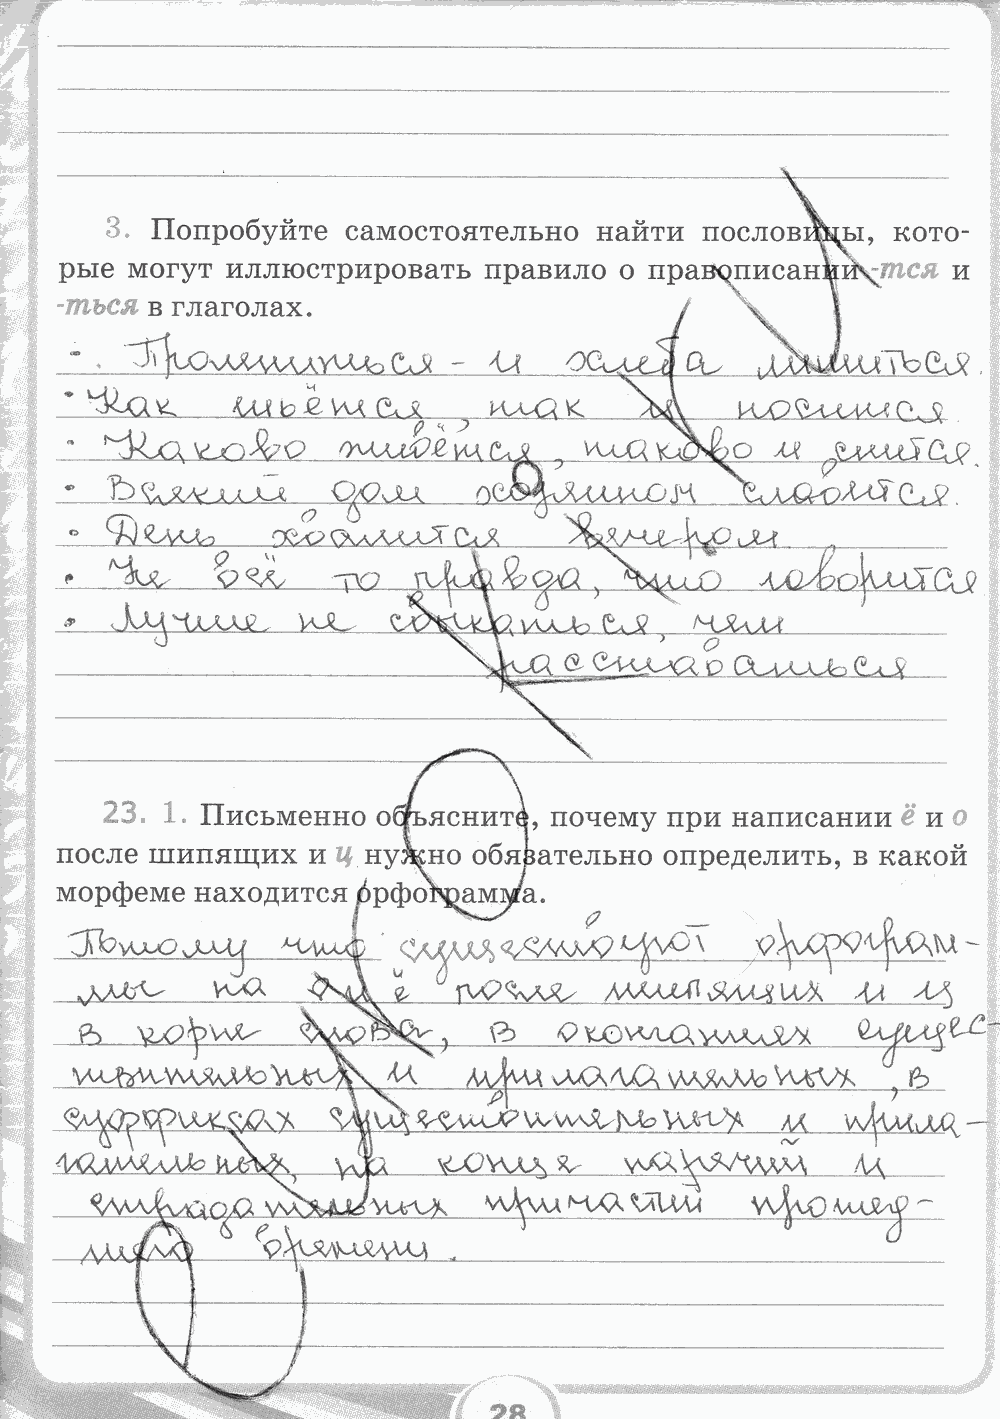 3. Попробуйте самостоятельно найти пословицы, кото-
рые могут иллюстрировать правило о правописании -тся и
-ться в глаголах.
• Проленишься - и хлеба лишиться.
• Как шьётся, так и носится
• Каково живётся, таково и спится.
• Всякий дом хозяином славится.
• День хвалится вечером.
• Не всё то правда, что говорится
• Лучше не свыкаться, чем
расставаться
23. 1. Письменно объясните, почему при написании ё и о
после шипящих и ц нужно обязательно определить, в какой
морфеме находится орфограмма.
Потому что существуют орфограм-
мы на о и ё после шипящих и ц
в корне слова, в окончаниях сущес-
твительных и прилагательных, в
суффиксах существительных и прила-
гательных, на конце наречий и
страдательных причастий прошед-
шего времени.
28